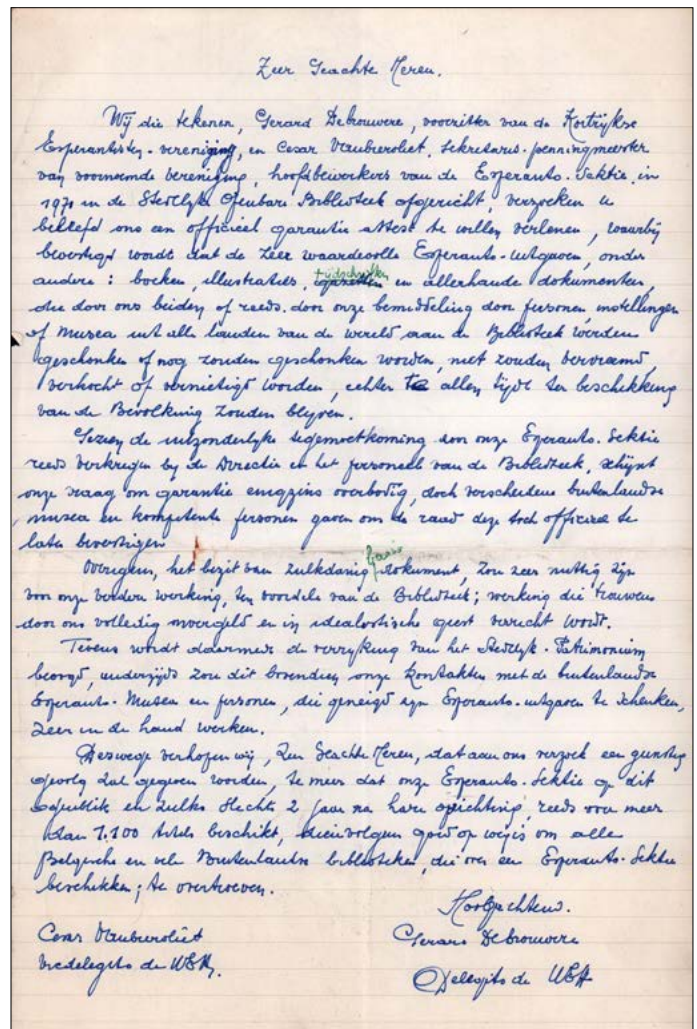 Zeer Geachte Heren.
Wij die tekenen, Gerard Debrouwere, voorzitter van de Kortrijkse
Esperantisten-vereniging, en Cesar Vanbiervliet, sekretaris-penningmeester
van voornoemde vereniging, hoofdbewerkers van de Esperanto-Sektie, in
1970 in de Stedelijk Openbare Bibliotheek opgericht, verzoeken U
beleefd ons een officieel garantie attest te willen verlenen, waarbij
bevestigd wordt dat de zeer waardevolle Esperanto-uitgaven, onder
tijdschriften
andere : boeken, illustraties, gazetten en allerhande dokumenten,
die door ons beiden of reeds door onze bemiddeling door personen, instellingen
of Musea uit alle landen van de wereld aan de Bibliotheek werden
geschonken of nog zouden geschonken worden, niet zouden vervreemd,
verkocht of vernietigd worden, echter te allen tijde ter beschikking
van de Bevolking zouden blijven.
Gezien de uitzonderlijke tegemoetkoming door onze Esperanto-Sektie
reeds verkregen bij de Directie en het personeel van de Bibliotheek, schijnt
onze vraag om garantie enigzins overbodig, doch verscheidene buitenlandse
musea en kompetente personen gaven ons de raad deze toch officieel te
laten bevestigen
Overigens, het bezit van zulkdanig dokument, zou zeer nuttig zijn
voor onze verdere werking, ten voordele van de Bibliotheek; werking die trouwens
door ons volledig onvergeld en in idealistische geest verricht wordt.
Tevens wordt daarmede de verrijking van het Stedelijk-Patrimonium
beoogd, anderzijds zou dit bovendien onze kontakten met de buitenlandse
Esperanto-Musea en personen, die geneigd zijn Esperanto-uitgaven te schenken,
zeer in de hand werken.
Deswege verhopen wij, Zeer Geachte Heren, dat aan ons verzoek een gunstig
gevolg zal gegeven worden, te meer dat onze Esperanto-Sektie op dit
ogenblik en zulks slechts 2 jaar na hare oprichting, reeds over meer
dan 1.100 titels beschikt, dienvolgens goed op weg is om alle
Belgische en vele Buitenlandse bibliotheken, die over een Esperanto-Sektie
beschikken; te overtroeven.
Hoogachtend.
Cesar Vanbiervliet
Gerard Debrouwere
Vicdelegito de UEA.
Delegito de UEA